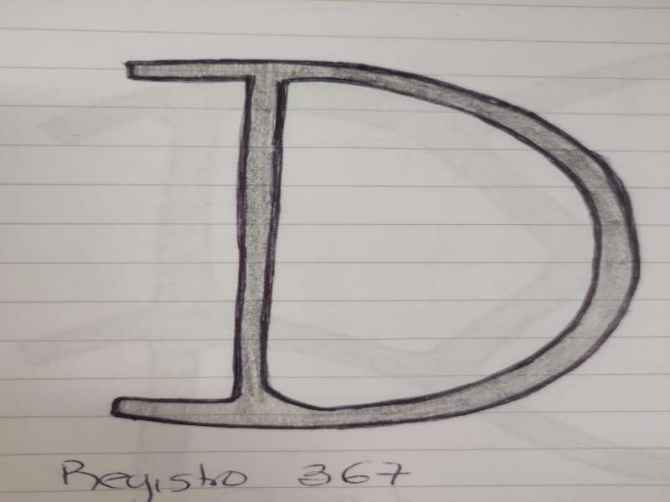 D
Registro 367